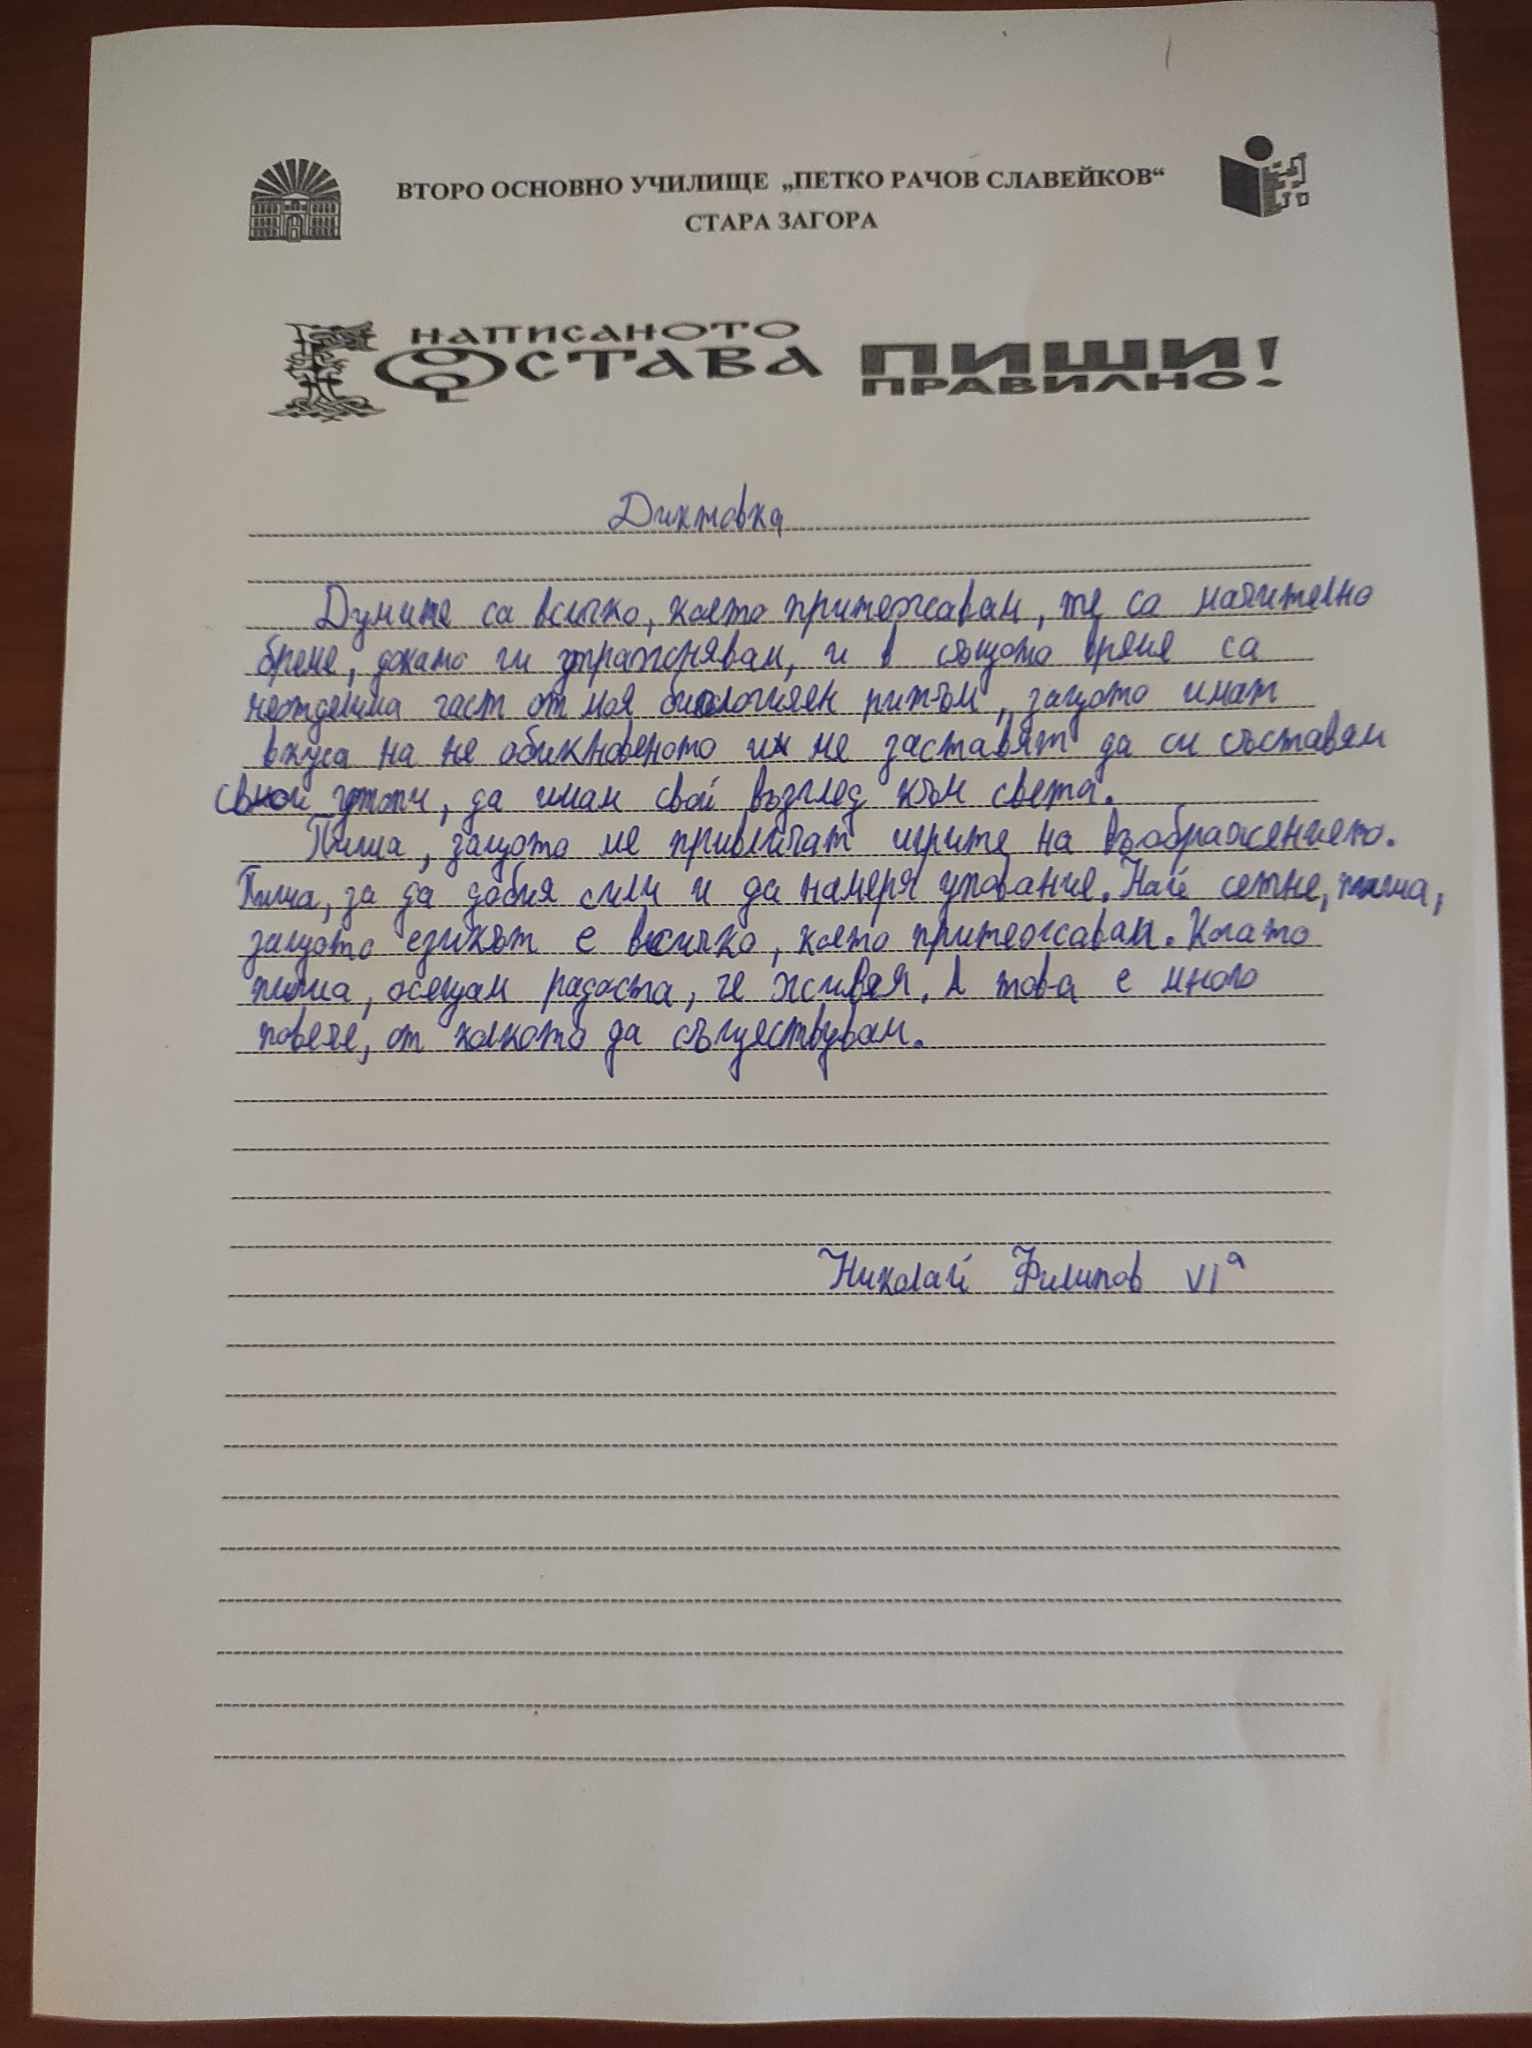 ВТОРО ОСНОВНО УЧИЛИЩЕ „ПЕТКО РАЧОВ СЛАВЕЙКОВ“
СТАРА ЗАГОРА
НАПИСАНОТО
ОСТАВА
ПИШИ
ПРАВИЛНО!
Диктовка
Думите са всичко, което притежавам, те са мъчително
бреме, докато ги упражнявам, и в същото време са
неотделима част от моя биологичен ритъм, защото имат
вкуса на не обикновеното и ме заставят да си съставям
свои утопи, да имам свой възглед към света.
Пиша, защото ме привличат игрите на въображението.
Пиша, за да добия сили и да намеря упование. Най сетне, пиша,
защото езикът е всичко, което притежавам. Когато
пиша, осещам радоста, че живея. А това е много
повече, от колкото да съществувам.
Николай Филипов VIа